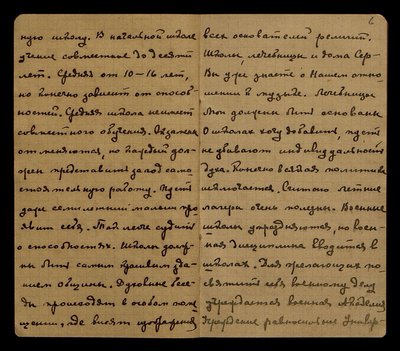 ную школу. В начальной школе
учение совместное до десяти
лет. Средняя от 10–16 лет,
но конечно зависит от способ-
ностей. Средняя школа не имеет
совместного обучения. Экзамены
отменяются, но каждый дол-
жен представить за год само-
стоятельную работу. Пусть
даже семилетний малыш про-
явит себя. Так легче судить
о способностях. Школы долж-
ны быть самым красивым зда-
нием общины. Духовные бесе-
ды происходят в особом поме-
щении, где висят изображения
6
всех основателей религий.
Школы, лечебницы и дома
Вы уже знаете о Нашем отно-
шении к музыке. Лечебницы
Мои должны быть основаны
О школах хочу добавить, пусть
не убивают индивидуальность
духа. Конечно всякая политика
исключается. Считаю летние
лагери очень полезны. Военные
школы упраздняются, но воен-
ная дисциплина вводится в
школах. Для желающих по-
святить себя военному делу
учреждается военная Академия
Учреждение равносильное Универ-